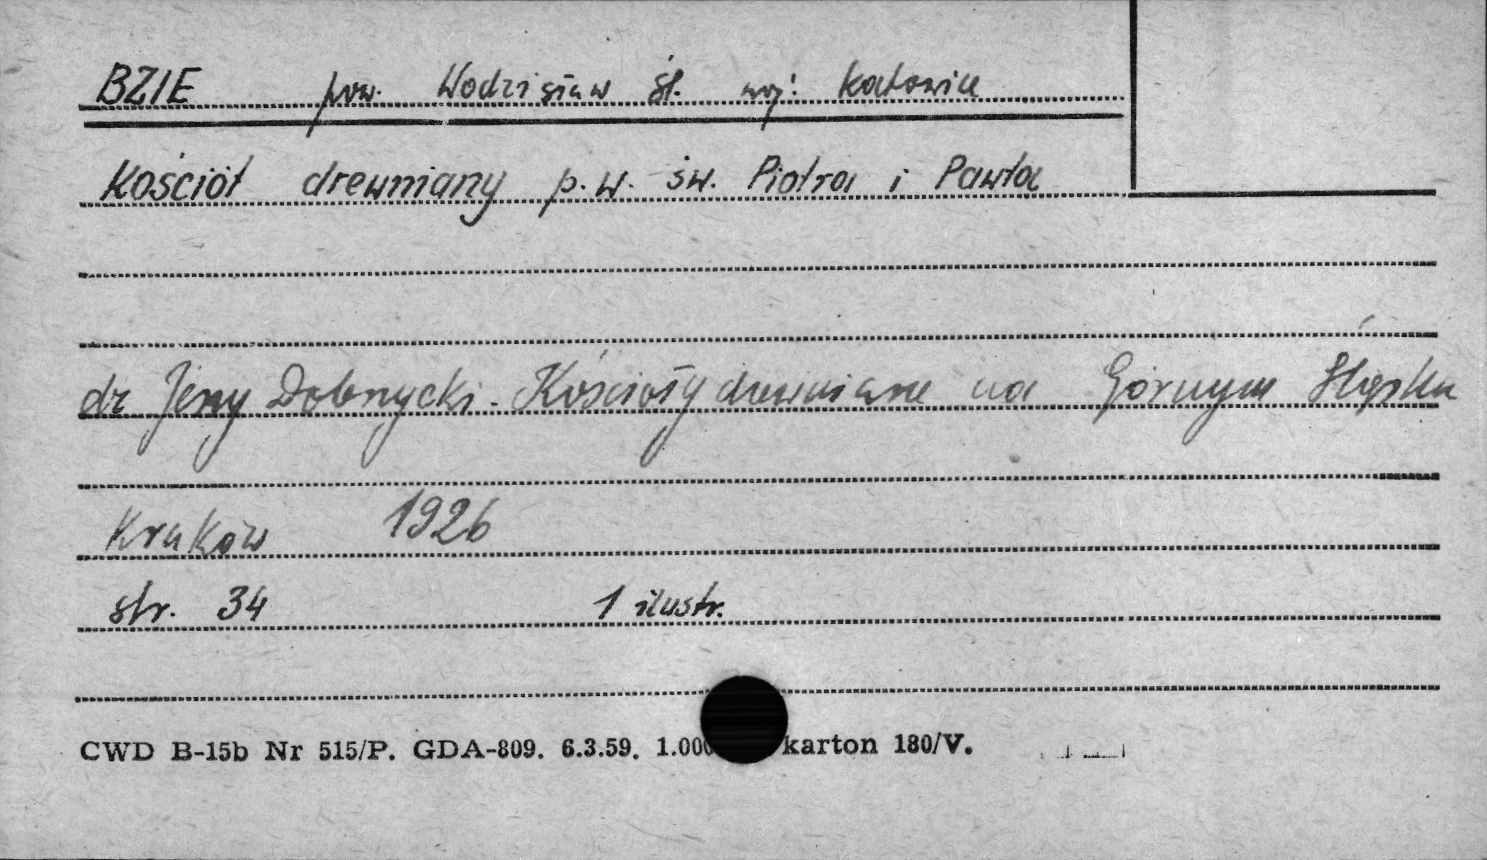 BZIE pow. Wodzisław Śl. woj: Katowice
Kościół drewniany p.w. św. Piotra i Pawła
dr Jerzy Dobrzycki. Kościoły drewniane na Górnym Śląsku
Kraków 1926
str. 34 1 ilustr.
CWD B-15b Nr 515/P. GDA-809. 6.3.59. 1.000 karton 180/V.